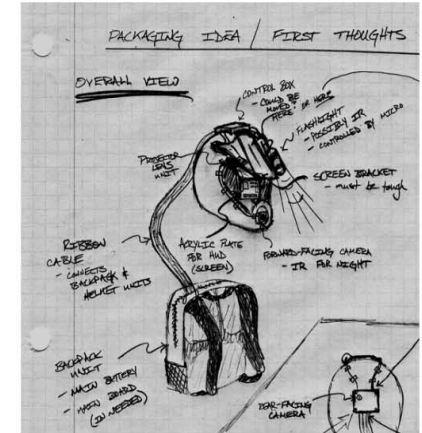 PACKAGING IDEA / FIRST THOUGHTS
OVERALL VIEW
CONTROL BOX
- COULD BE
MOVED HERE OR HERE
FLASHLIGHT
- POSSIBLY IR
- CONTROLLED BY MICRO
PROJECTOR
LENS
UNIT
SCREEN BRACKET
- must be tough
RIBBON
CABLE
- CONNECTS
BACKPACK &
HELMET UNITS
ACRYLIC PLATE
FOR HUD
(SCREEN)
FORWARD-FACING CAMERA
- IR FOR NIGHT
BACKPACK
UNIT
- MAIN BATTERY
- MAIN BOARD
(IF NEEDED)
REAR-FACING
CAMERA